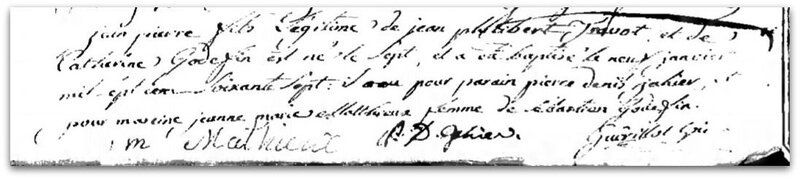 jean pierre fils Legitime de jean philibert Travot, et de
Catherine Godefin est né le sept, et a été baptisé le neuf janvier
mil sept cens soixante sept: il a eu pour parain pierre denis Gahier, et
pour mareine jeanne marie Matthieux femme de sebastien Godefin.
m Mathieux P. D. Gahier